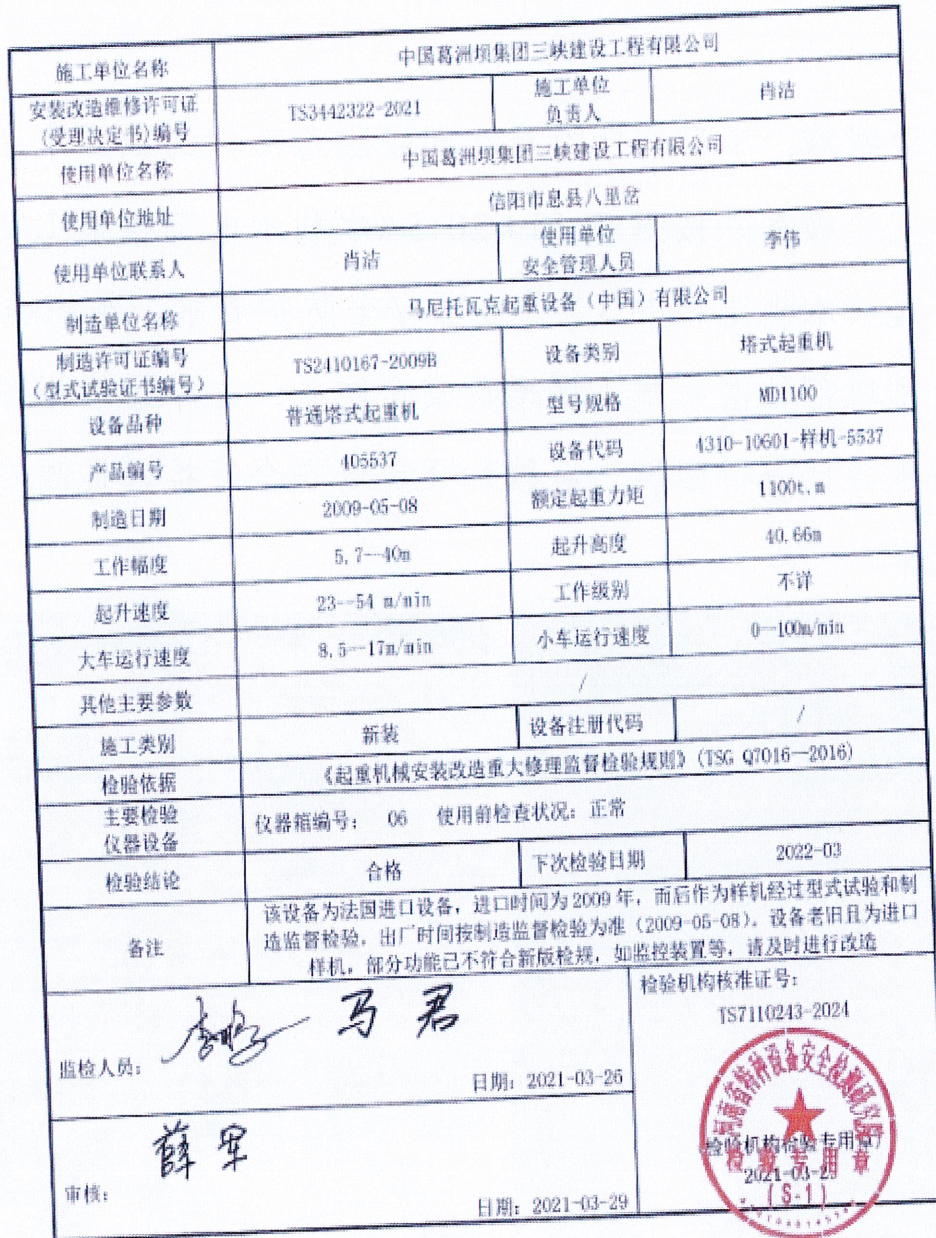 施工单位名称 中国葛洲坝集团三峡建设工程有限公司
安装改造维修许可证
(受理决定书)编号 TS3442322-2021 施工单位
负责人 肖洁
使用单位名称 中国葛洲坝集团三峡建设工程有限公司
使用单位地址 信阳市息县八里岔
使用单位联系人 肖洁 使用单位
安全管理人员 李伟
制造单位名称 马尼托瓦克起重设备（中国）有限公司
制造许可证编号
（型式试验证书编号） TS2410167-2009B 设备类别 塔式起重机
设备品种 普通塔式起重机 型号规格 MD1100
产品编号 405537 设备代码 4310-10601-样机-5537
制造日期 2009-05-08 额定起重力矩 1100t.m
工作幅度 5.7--40m 起升高度 40.66m
起升速度 23--54 m/min 工作级别 不详
大车运行速度 8.5--17m/min 小车运行速度 0--100m/min
其他主要参数 /
施工类别 新装 设备注册代码 /
检验依据 《起重机械安装改造重大修理监督检验规则》(TSG Q7016—2016)
主要检验
仪器设备 仪器箱编号： 06 使用前检查状况：正常
检验结论 合格 下次检验日期 2022-03
备注 该设备为法国进口设备，进口时间为 2009 年，而后作为样机经过型式试验和制
造监督检验，出厂时间按制造监督检验为准（2009-05-08）。设备老旧且为进口
样机，部分功能已不符合新版检规，如监控装置等，请及时进行改造
监检人员： 马君
日期：2021-03-26
检验机构核准证号：
TS7110243-2024
河南省特种设备安全检测研究院
检验机构检验专用章)
检验专用章
(S-1)
审核： 薛军
日期：2021-03-29